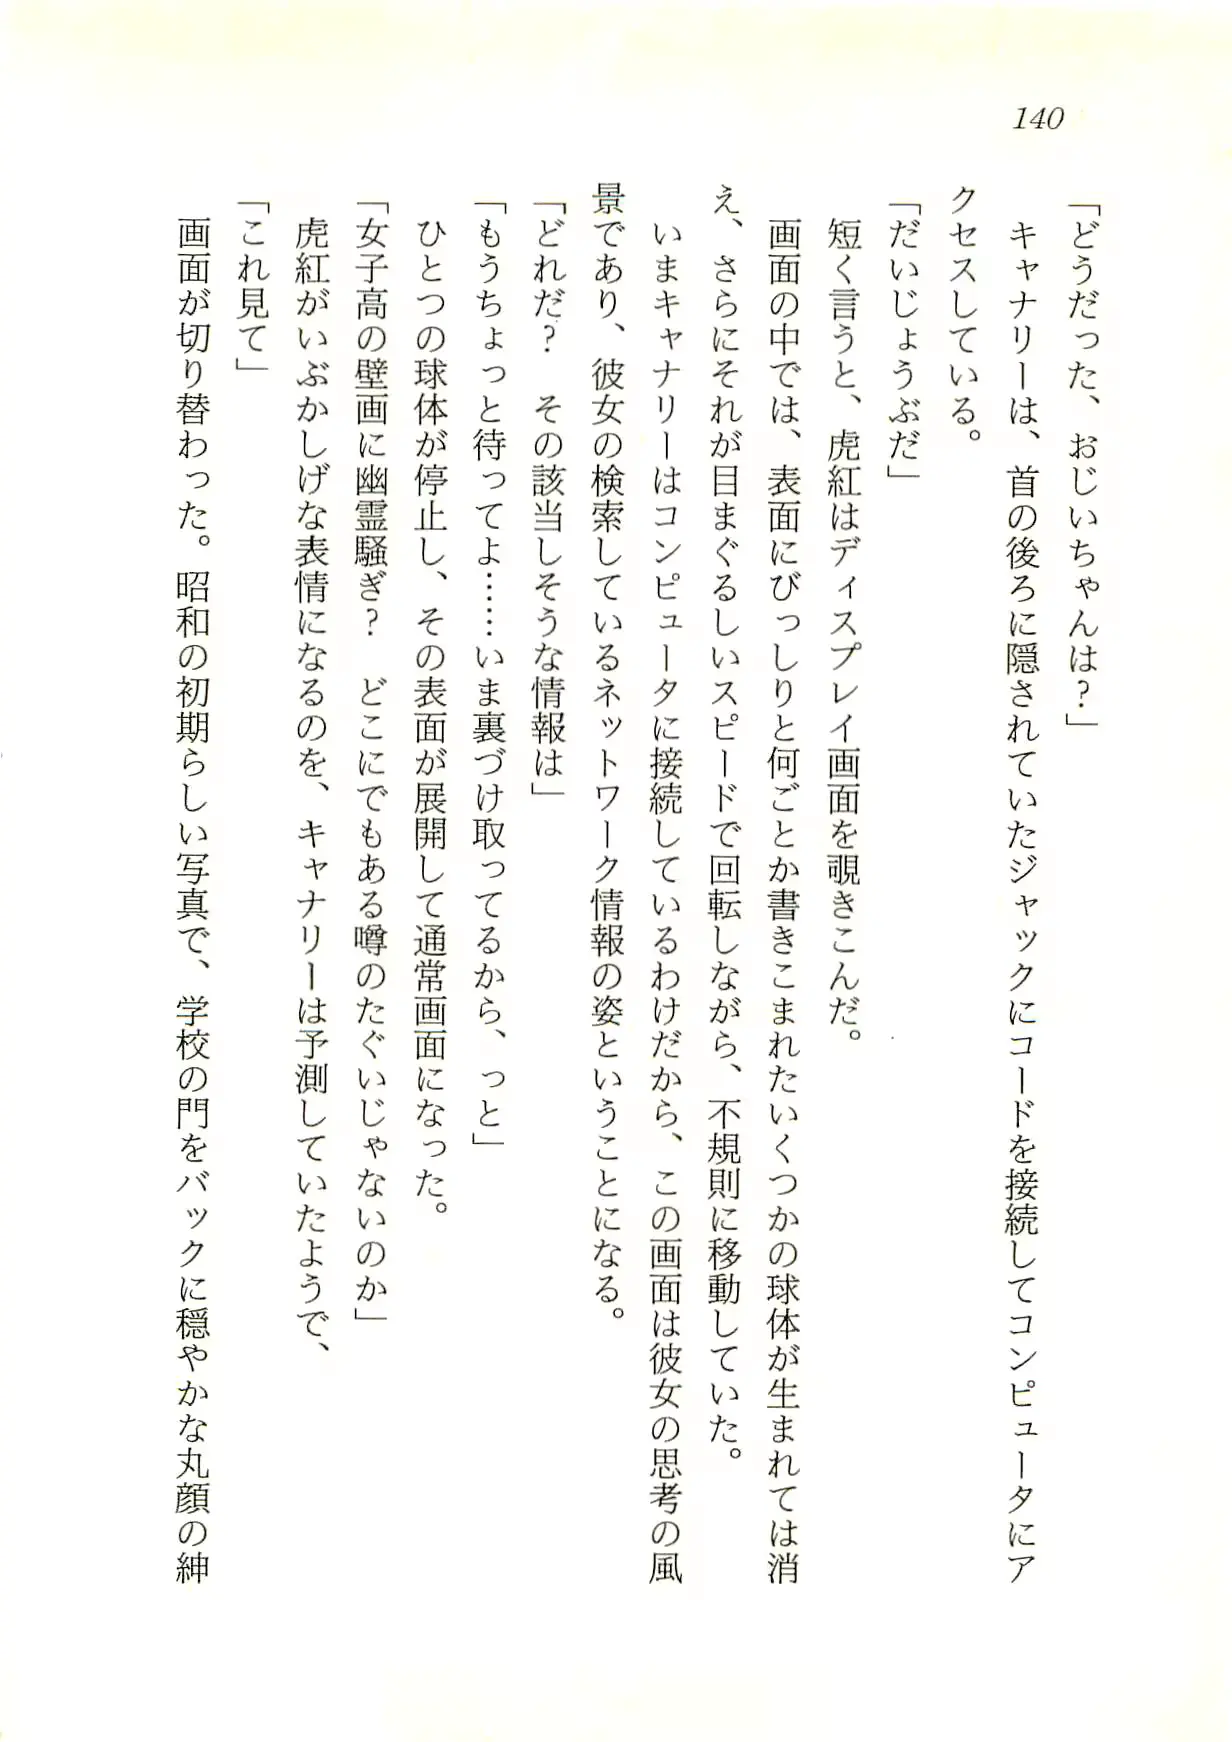 140
「どうだった、おじいちゃんは?」
　キャナリーは、首の後ろに隠されていたジャックにコードを接続してコンピュータにア
クセスしている。
「だいじょうぶだ」
　短く言うと、虎紅はディスプレイ画面を覗きこんだ。
　画面の中では、表面にびっしりと何ごとか書きこまれたいくつかの球体が生まれては消
え、さらにそれが目まぐるしいスピードで回転しながら、不規則に移動していた。
　いまキャナリーはコンピュータに接続しているわけだから、この画面は彼女の思考の風
景であり、彼女の検索しているネットワーク情報の姿ということになる。
「どれだ?　その該当しそうな情報は」
「もうちょっと待ってよ……いま裏づけ取ってるから、っと」
　ひとつの球体が停止し、その表面が展開して通常画面になった。
「女子高の壁画に幽霊騒ぎ?　どこにでもある噂のたぐいじゃないのか」
　虎紅がいぶかしげな表情になるのを、キャナリーは予測していたようで、
「これ見て」
　画面が切り替わった。昭和の初期らしい写真で、学校の門をバックに穏やかな丸顔の紳